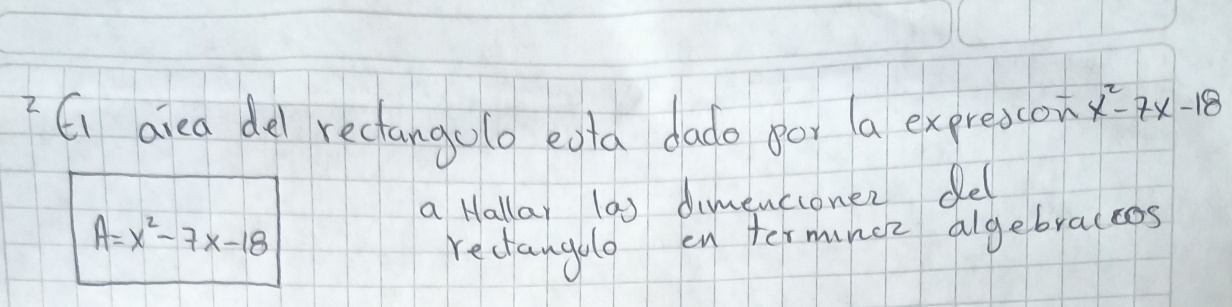 2 El area del rectangulo esta dado por la exprescon x²-7x-18
A=x²-7x-18
a Hallar las dimenciones del
rectangulo en terminoz algebraicos